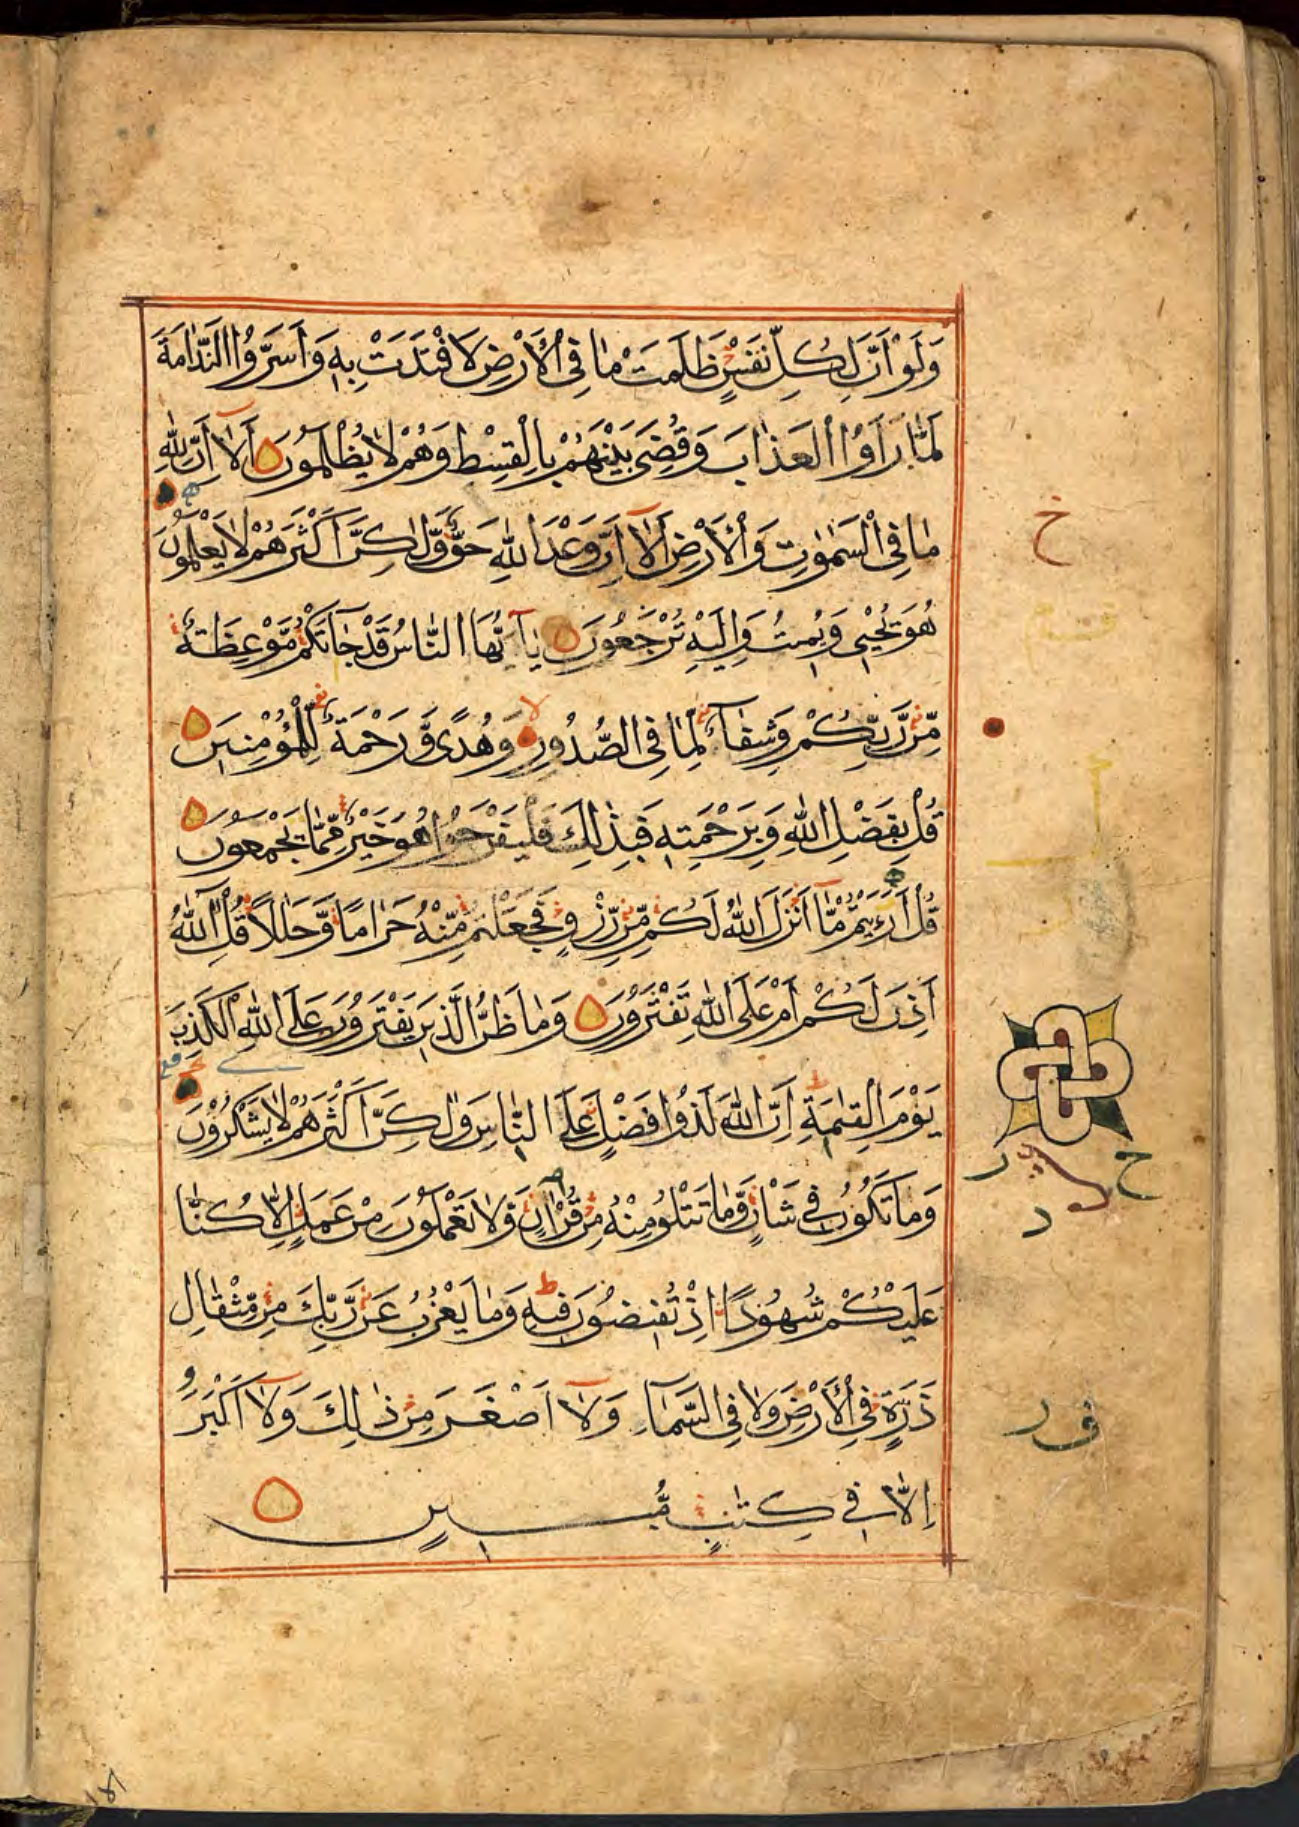 وَلَوْ اَنَّ لِكُلِّ نَفْسٍ ظَلَمَتْ مَا فِي الْاَرْضِ لَافْتَدَتْ بِهِ وَاَسَرُّوا النَّدَامَةَ
لَمَّا رَاَوُا الْعَذَابَ وَقُضِيَ بَيْنَهُمْ بِالْقِسْطِ وَهُمْ لَا يُظْلَمُونَ اَلَا اِنَّ لِلّٰهِ
مَا فِي السَّمٰوٰتِ وَالْاَرْضِ اَلَا اِنَّ وَعْدَ اللّٰهِ حَقٌّ وَّلٰكِنَّ اَكْثَرَهُمْ لَا يَعْلَمُونَ
هُوَ يُحْيِي وَيُمِيتُ وَاِلَيْهِ تُرْجَعُونَ يٰٓاَيُّهَا النَّاسُ قَدْ جَاءَتْكُمْ مَّوْعِظَةٌ
مِّنْ رَّبِّكُمْ وَشِفَآءٌ لِّمَا فِي الصُّدُورِ وَهُدًى وَّرَحْمَةٌ لِّلْمُؤْمِنِينَ
قُلْ بِفَضْلِ اللّٰهِ وَبِرَحْمَتِهِ فَبِذٰلِكَ فَلْيَفْرَحُوا هُوَ خَيْرٌ مِّمَّا يَجْمَعُونَ
قُلْ اَرَءَيْتُمْ مَّآ اَنْزَلَ اللّٰهُ لَكُمْ مِّنْ رِّزْقٍ فَجَعَلْتُمْ مِّنْهُ حَرَامًا وَّحَلَالًا قُلْ آللّٰهُ
اَذِنَ لَكُمْ اَمْ عَلَى اللّٰهِ تَفْتَرُونَ وَمَا ظَنُّ الَّذِينَ يَفْتَرُونَ عَلَى اللّٰهِ الْكَذِبَ
يَوْمَ الْقِيٰمَةِ اِنَّ اللّٰهَ لَذُوا فَضْلٍ عَلَى النَّاسِ وَلٰكِنَّ اَكْثَرَهُمْ لَا يَشْكُرُونَ
وَمَا تَكُونُ فِي شَاْنٍ وَّمَا تَتْلُو مِنْهُ مِنْ قُرْاٰنٍ وَّلَا تَعْمَلُونَ مِنْ عَمَلٍ اِلَّا كُنَّا
عَلَيْكُمْ شُهُودًا اِذْ تُفِيضُونَ فِيهِ وَمَا يَعْزُبُ عَنْ رَّبِّكَ مِنْ مِّثْقَالِ
ذَرَّةٍ فِي الْاَرْضِ وَلَا فِي السَّمَآءِ وَلَآ اَصْغَرَ مِنْ ذٰلِكَ وَلَآ اَكْبَرَ
اِلَّا فِي كِتٰبٍ مُّبِينٍ